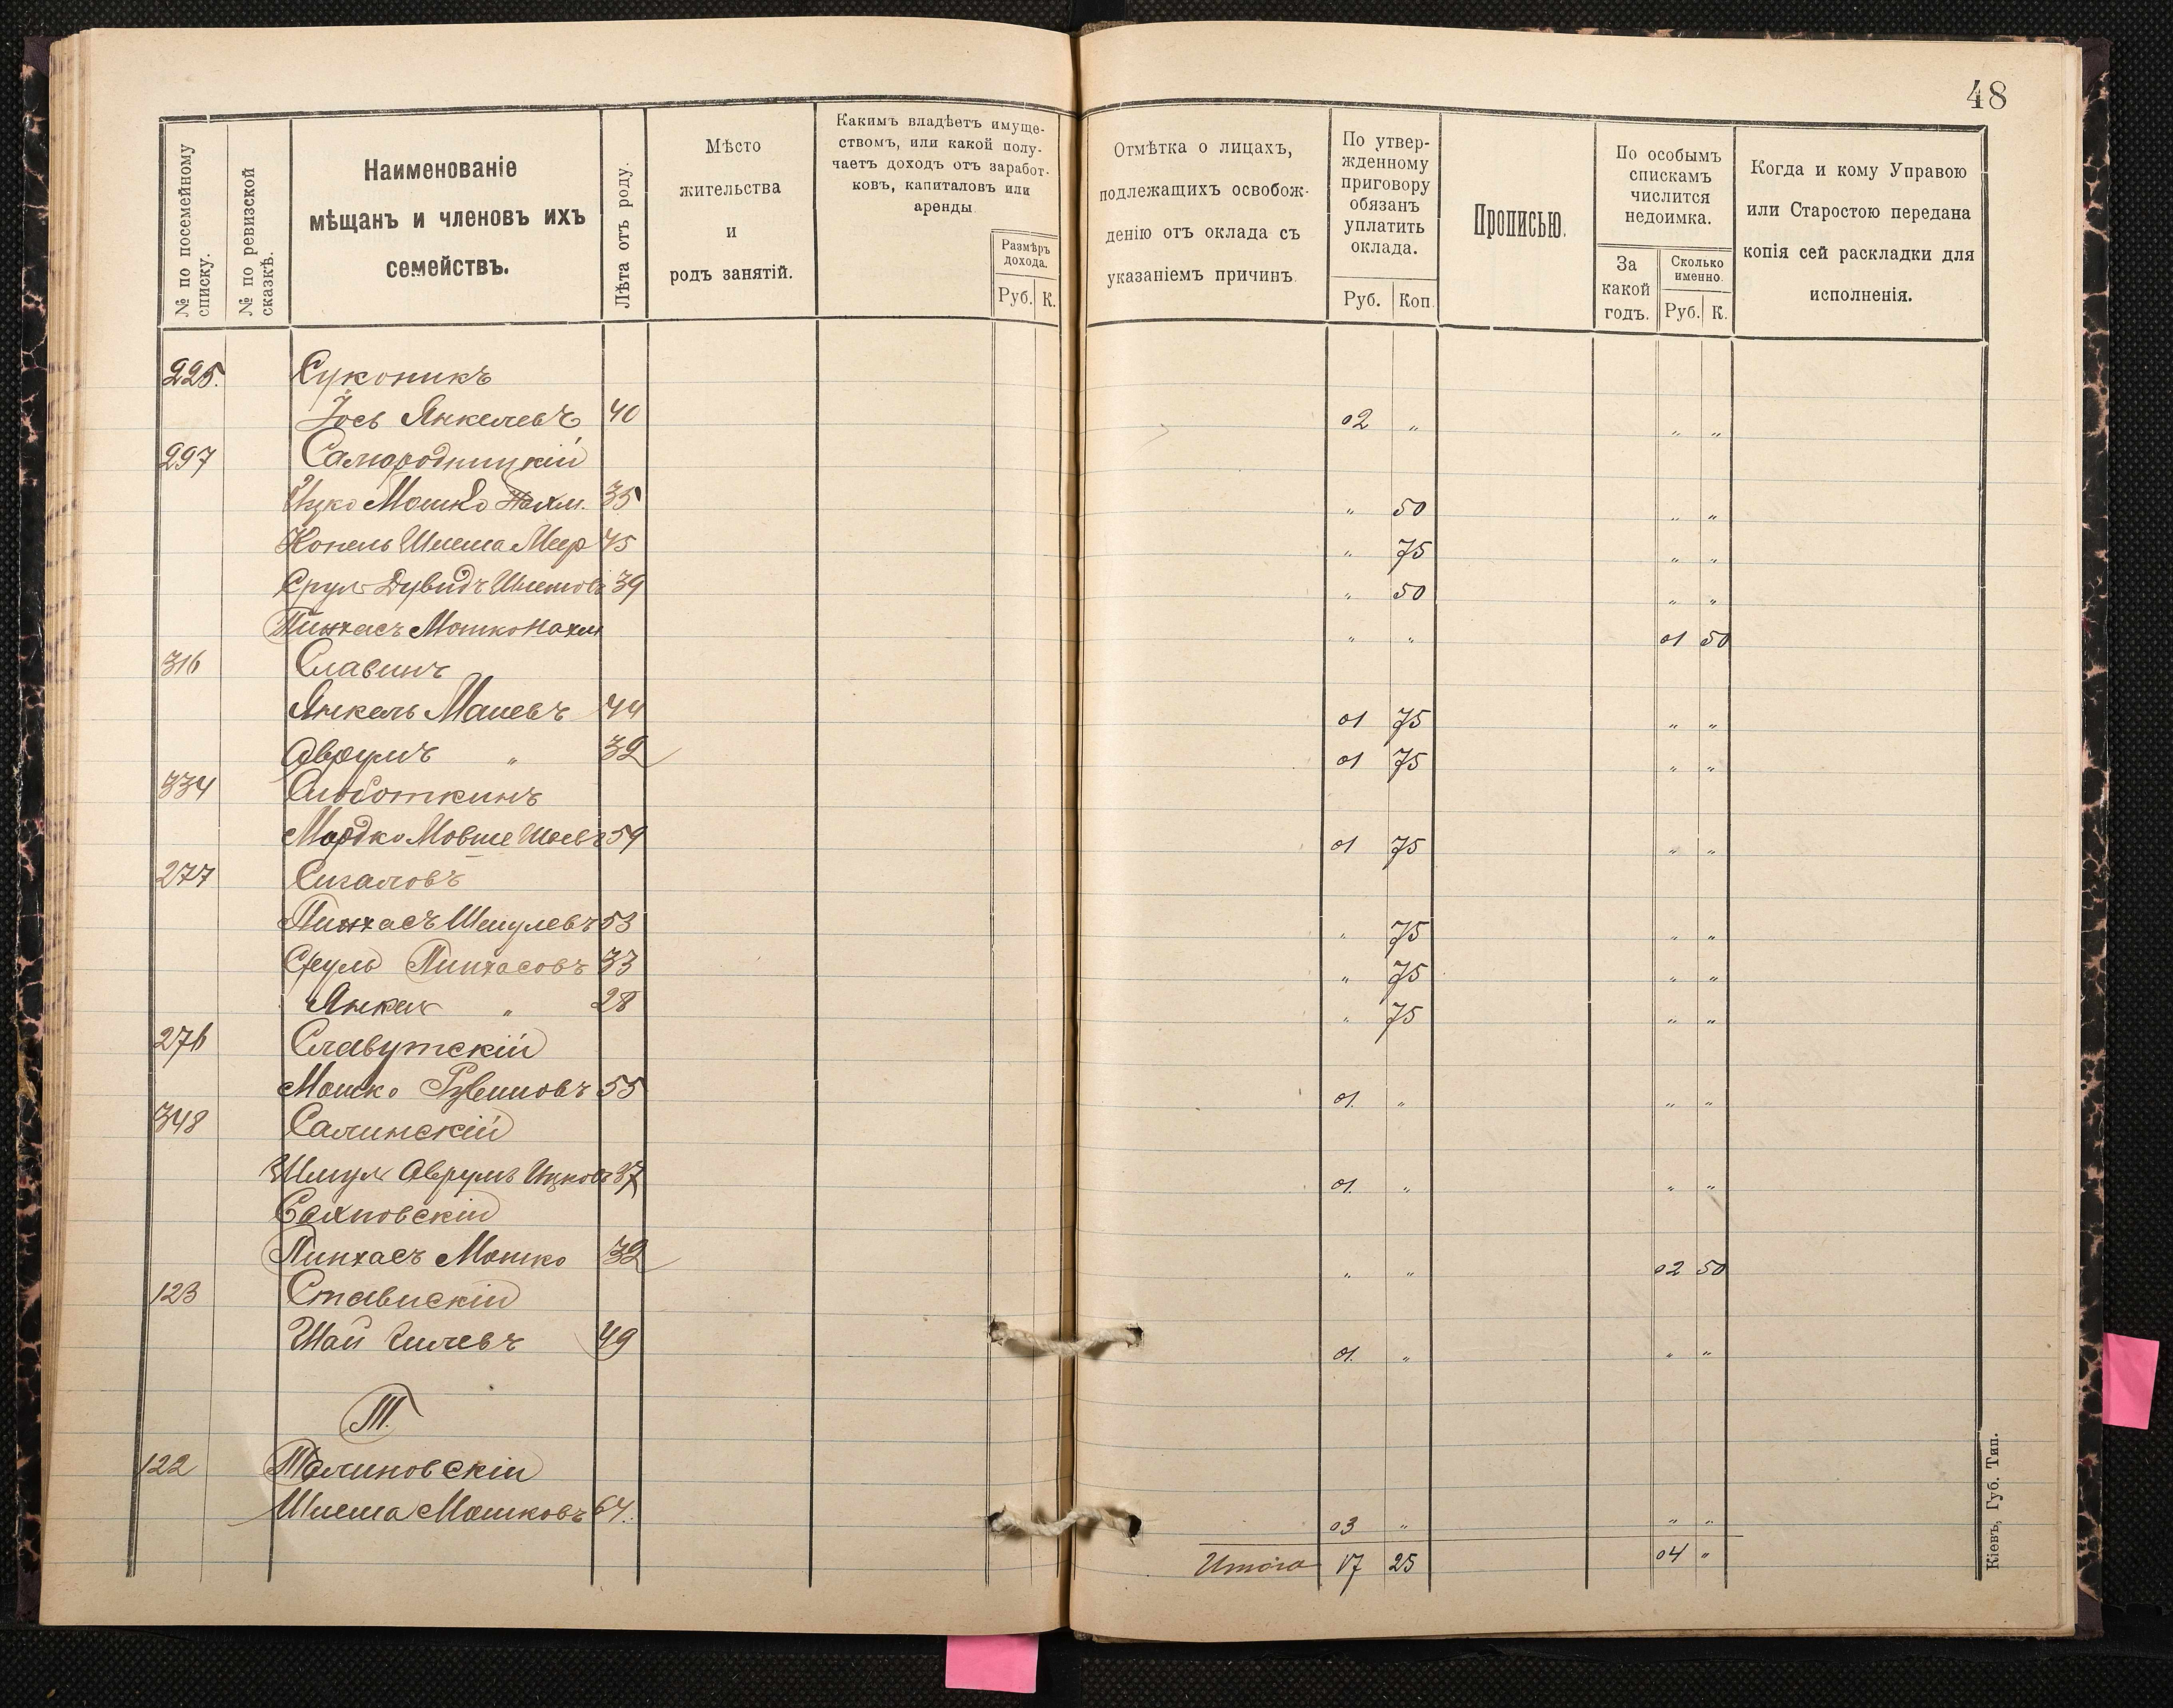 48
№ по посемейному списку.
№ по ревизской сказкѣ.
Наименованіе
мѣщанъ и членовъ ихъ
семействъ.
Лѣта отъ роду.
Мѣсто
жительства
и
родъ занятій.
Какимъ владѣетъ имуще-
ствомъ, или какой полу-
чаетъ доходъ отъ заработ-
ковъ, капиталовъ или
аренды
Размѣръ
дохода.
Руб. К.
Отмѣтка о лицахъ,
подлежащихъ освобож-
денію отъ оклада съ
указаніемъ причинъ.
По утвер-
жденному
приговору
обязанъ
уплатить
оклада.
Руб. Коп.
Прописью.
По особымъ
спискамъ
числится
недоимка.
За
какой
годъ.
Сколько
именно.
Руб. К.
Когда и кому Управою
или Старостою передана
копія сей раскладки для
исполненія.
225. Суконикъ
Іось Янкелевъ 40 02 „ „ „
297 Самородницкій
Ицко Мошко Нахм. 35 „ 50 „ „
Конель Шлема Меер 45 „ 75 „ „
Срул Дувидъ Шлемов 39 „ 50 „ „
Пинхасъ Мошко Нахм „ „ 01 50
316 Славинъ
Янкель Маневъ 44 01 75 „ „
Аврумъ „ 32 01 75 „ „
334 Слоботкинъ
Мордко Мовше 59 01 75 „ „
277 Сигаловъ
Пинхасъ Шмулевъ 53 „ 75 „ „
Сруль Пинхасовъ 33 „ 75 „ „
Янкел „ 28 „ 75 „ „
276 Славутскій
Мошко Рувиновъ 55 01. „ „ „
348 Салинскій
Шмул Аврумъ Ицков 37 01. „ „ „
Сахновскій
Пинхасъ Мошко 32 „ „ 02 50
123 Ставискій
Шай 49 01. „ „ „
Т.
122 Талиновскій
Шлема Мошковъ 64. 03 „ „ „
Итого 17 25 04 „
Кіевъ, Губ. Тип.